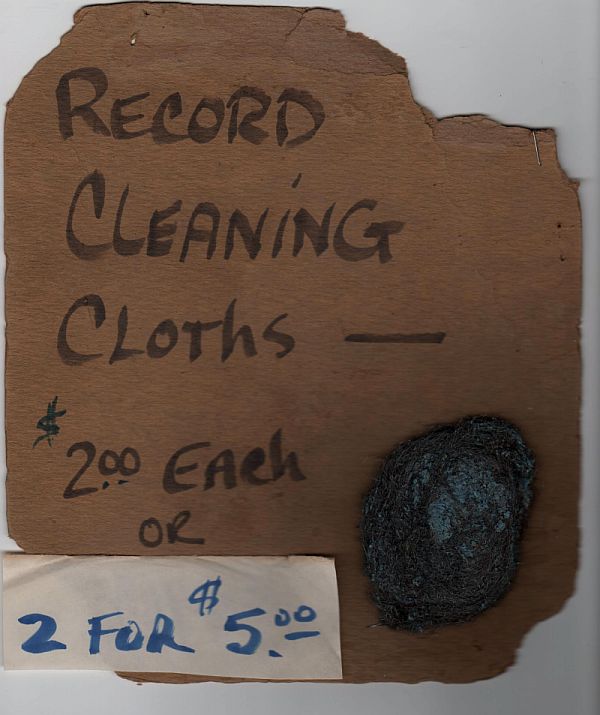 RECORD
CLEANING
CLOThS —
$2.00 EACh
OR
2 FOR $5.00